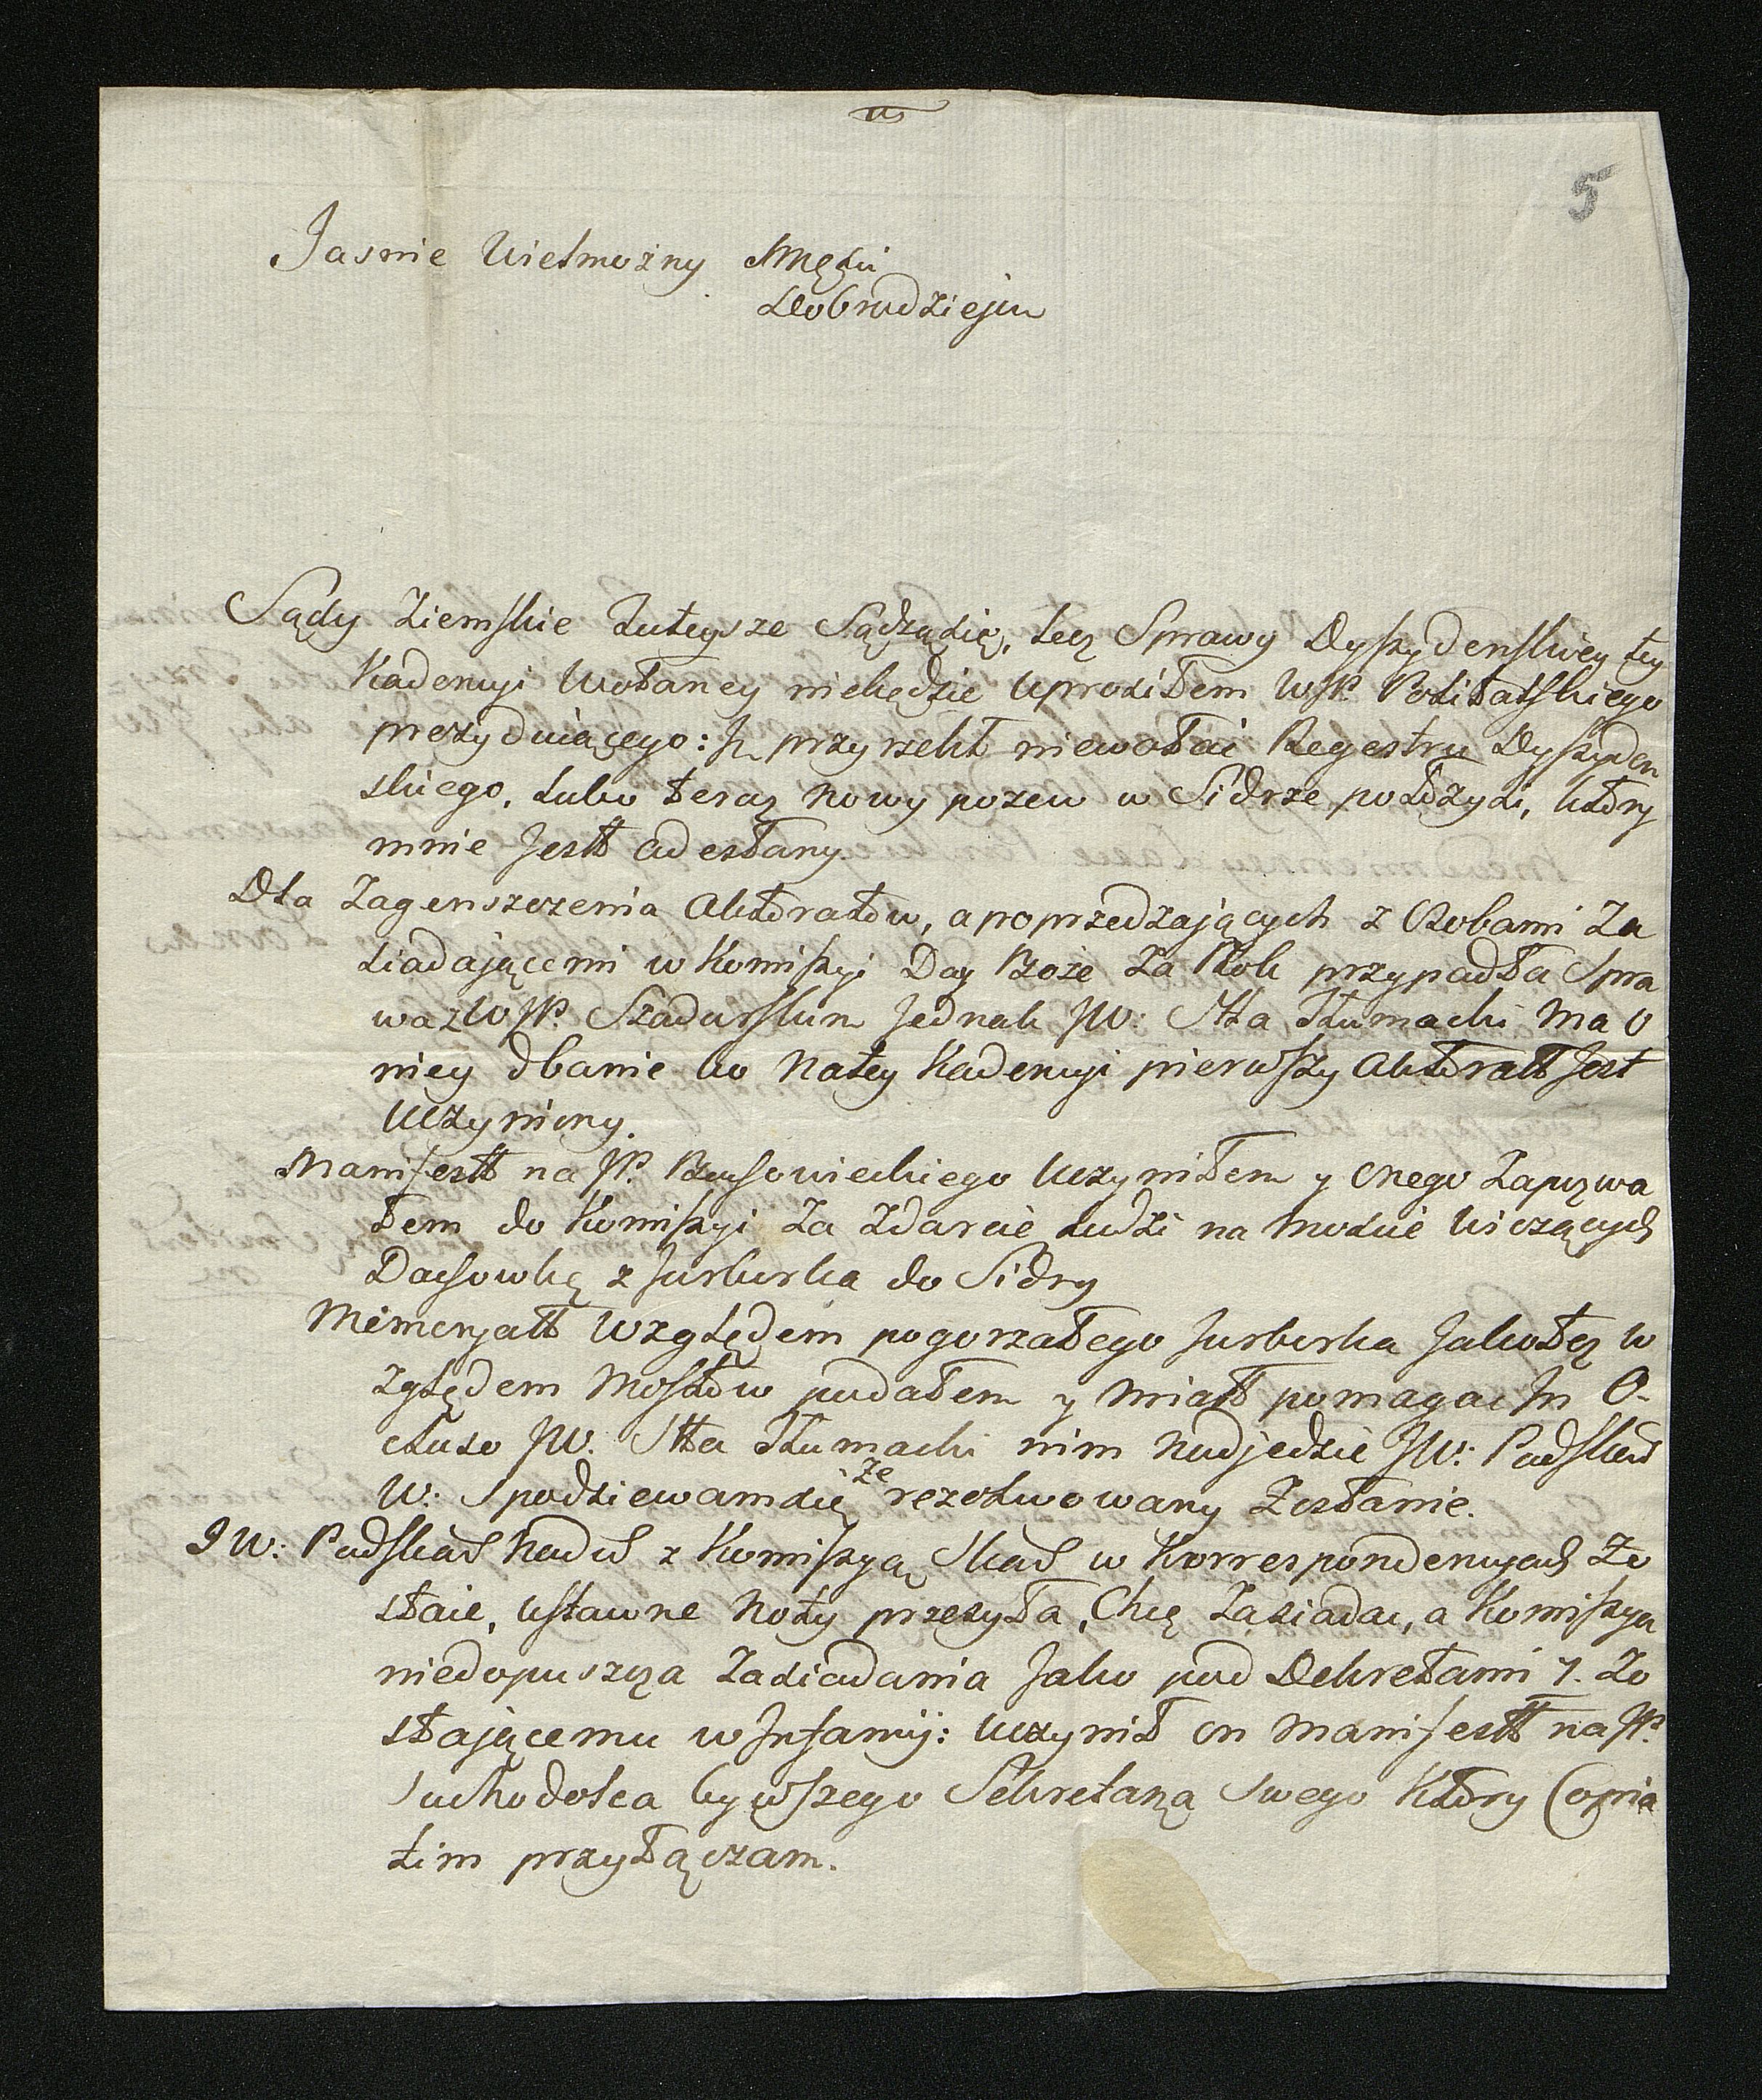 5
Jasnie Wielmożny Mości
Dobrodzieju
Sądy Ziemskie Tuteysze Sądząsię, lecz Sprawy Dyssydenskiey tey
Kadencyi wołaney niebędzie uprosiłem WJP.
prezyduiącego: J. przyrzekł niewołać Regestru Dyssyden
skiego, lubo teraz nowy pozew w Sidrze położyli, który
mnie jestt adesłany.
Dla Zagęnszczenia Aktoratow, a poprzedzających z Osobami Za
siadającemi w Komissyi Day Boże Za Rok przypadła Spra
wa z WJP. Szadurskim jednak JW: Stta Tłumacki ma o
niey dbanie bo Natey Kadencyi pierwszy Aktoratt Jest
uczyniony.
Manifestt na JP. uczyniłem y onego Zapozwa
łem do Komissyi Za Zdarcie Ludzi na Moście wiozących
Dachowkę z Jurborka do Sidry
Memoryałł względem pogorzałego Jurborka Jakotez w
zględem Mostow podałem y miałł pomagać In O-
cluso JW. Stta Tłumacki nim nadjedzie JW: Podskar
W: Spodziewamsię że rezolwowany Zostanie.
JW: Podskar Nadw z Komissyą Skar w Korrespondencyach Zo
staie, ustawne Noty przesyła, Chcę Zasiadać, a Komissya
niedopuszcza Zasiadania Jako pod Dekretami y. Zo
stającemu w Infamij: uczynił on Manifestt na JP.
Suchodolca bywszego Sekretarza Swego Który Copia
tim przyłączam.